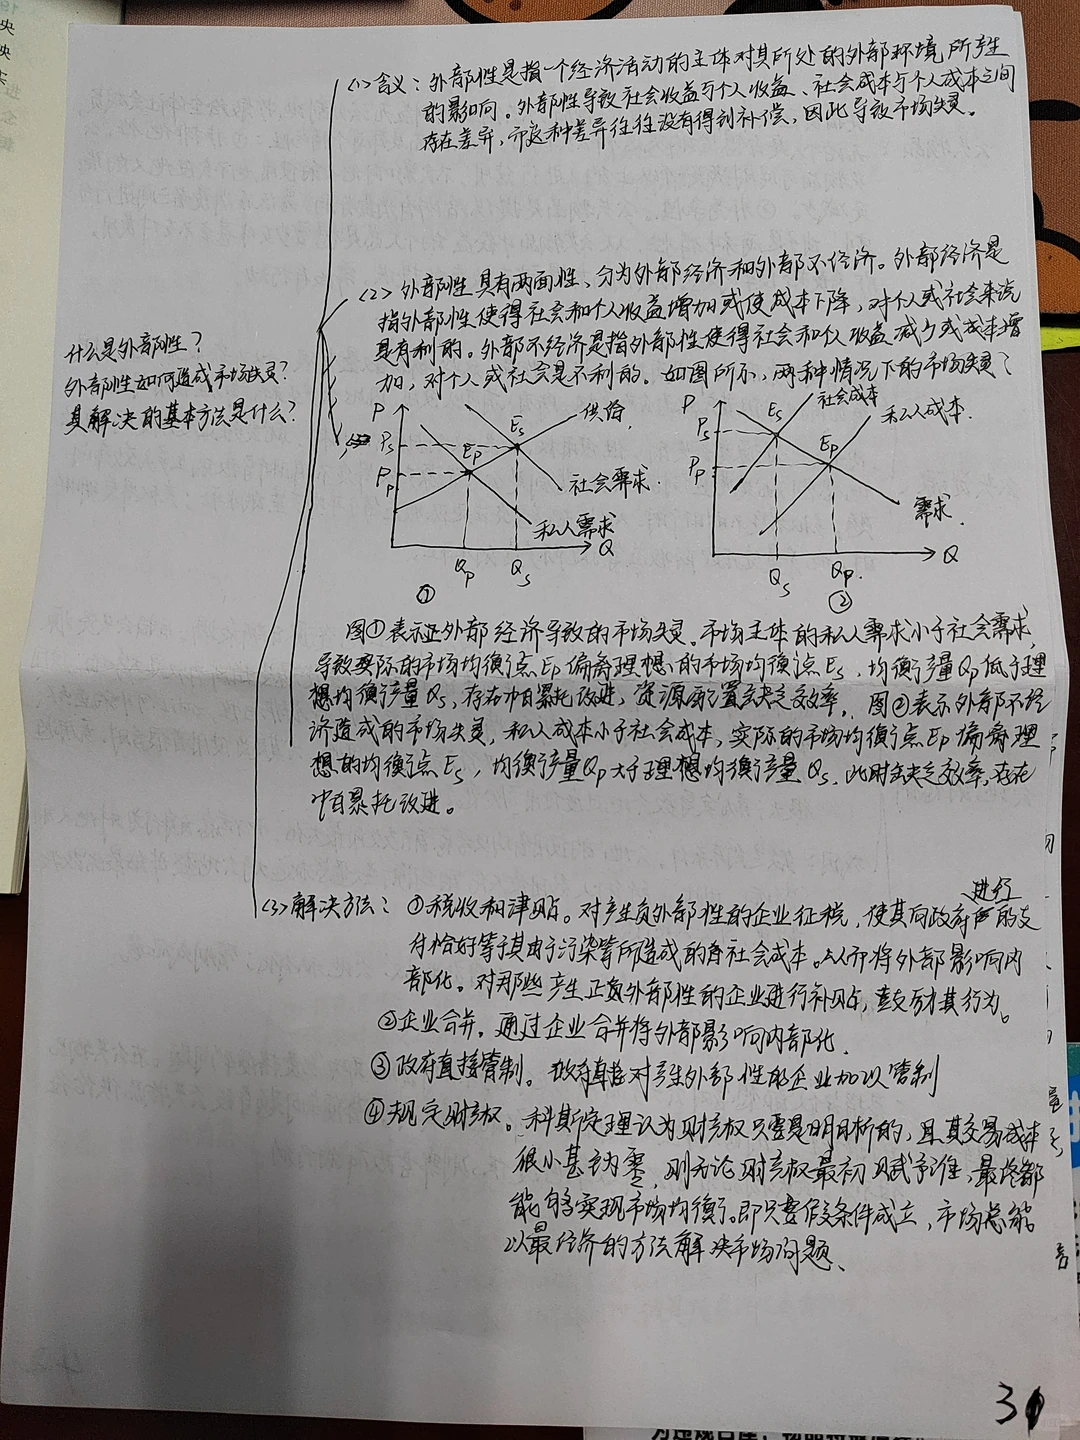 (1) 含义：外部性是指一个经济活动的主体对其所处的外部环境所产生
的影响。外部性导致社会收益与个人收益、社会成本与个人成本之间
存在差异，而这种差异往往没有得到补偿，因此导致市场失灵。
(2) 外部性具有两面性，分为外部经济和外部不经济。外部经济是
指外部性使得社会和个人收益增加或使成本下降，对个人或社会来说
是有利的。外部不经济是指外部性使得社会和个人收益减少或成本增
加，对个人或社会是不利的。如图所示，两种情况下的市场失灵
什么是外部性？
外部性如何造成市场失灵？
其解决的基本方法是什么？
P
Ps
Pp
Es
Ep
供给
社会需求
私人需求
Qp
Qs
Q
①
P
Ps
Pp
Es
Ep
社会成本
私人成本
需求
Qs
Qp
Q
②
图①表示正外部经济导致的市场失灵。市场主体的私人需求小于社会需求，
导致实际的市场均衡点Ep偏离理想的市场均衡点Es，均衡产量Qp低于理
想均衡产量Qs，存在帕累托改进，资源配置缺乏效率。图②表示外部不经
济造成的市场失灵，私人成本小于社会成本，实际的市场均衡点Ep偏离理
想的均衡点Es，均衡产量Qp大于理想均衡产量Qs，此时缺乏效率，存在
帕累托改进。
进行
(3) 解决方法：①税收和津贴。对产生负外部性的企业征税，使其向政府的支
付恰好等于其由于污染等所造成的社会成本。从而将外部影响内
部化。对那些产生正外部性的企业进行补贴，鼓励其行为。
②企业合并，通过企业合并将外部影响内部化。
③政府直接管制。政府直接对产生外部性的企业加以管制
④规定财产权。科斯定理认为财产权只要是明晰的，且其交易成本
很小甚至为零，则无论财产权最初赋予谁，最终都
能够实现市场均衡。即只要假设条件成立，市场总能
以最经济的方法解决市场问题、
3